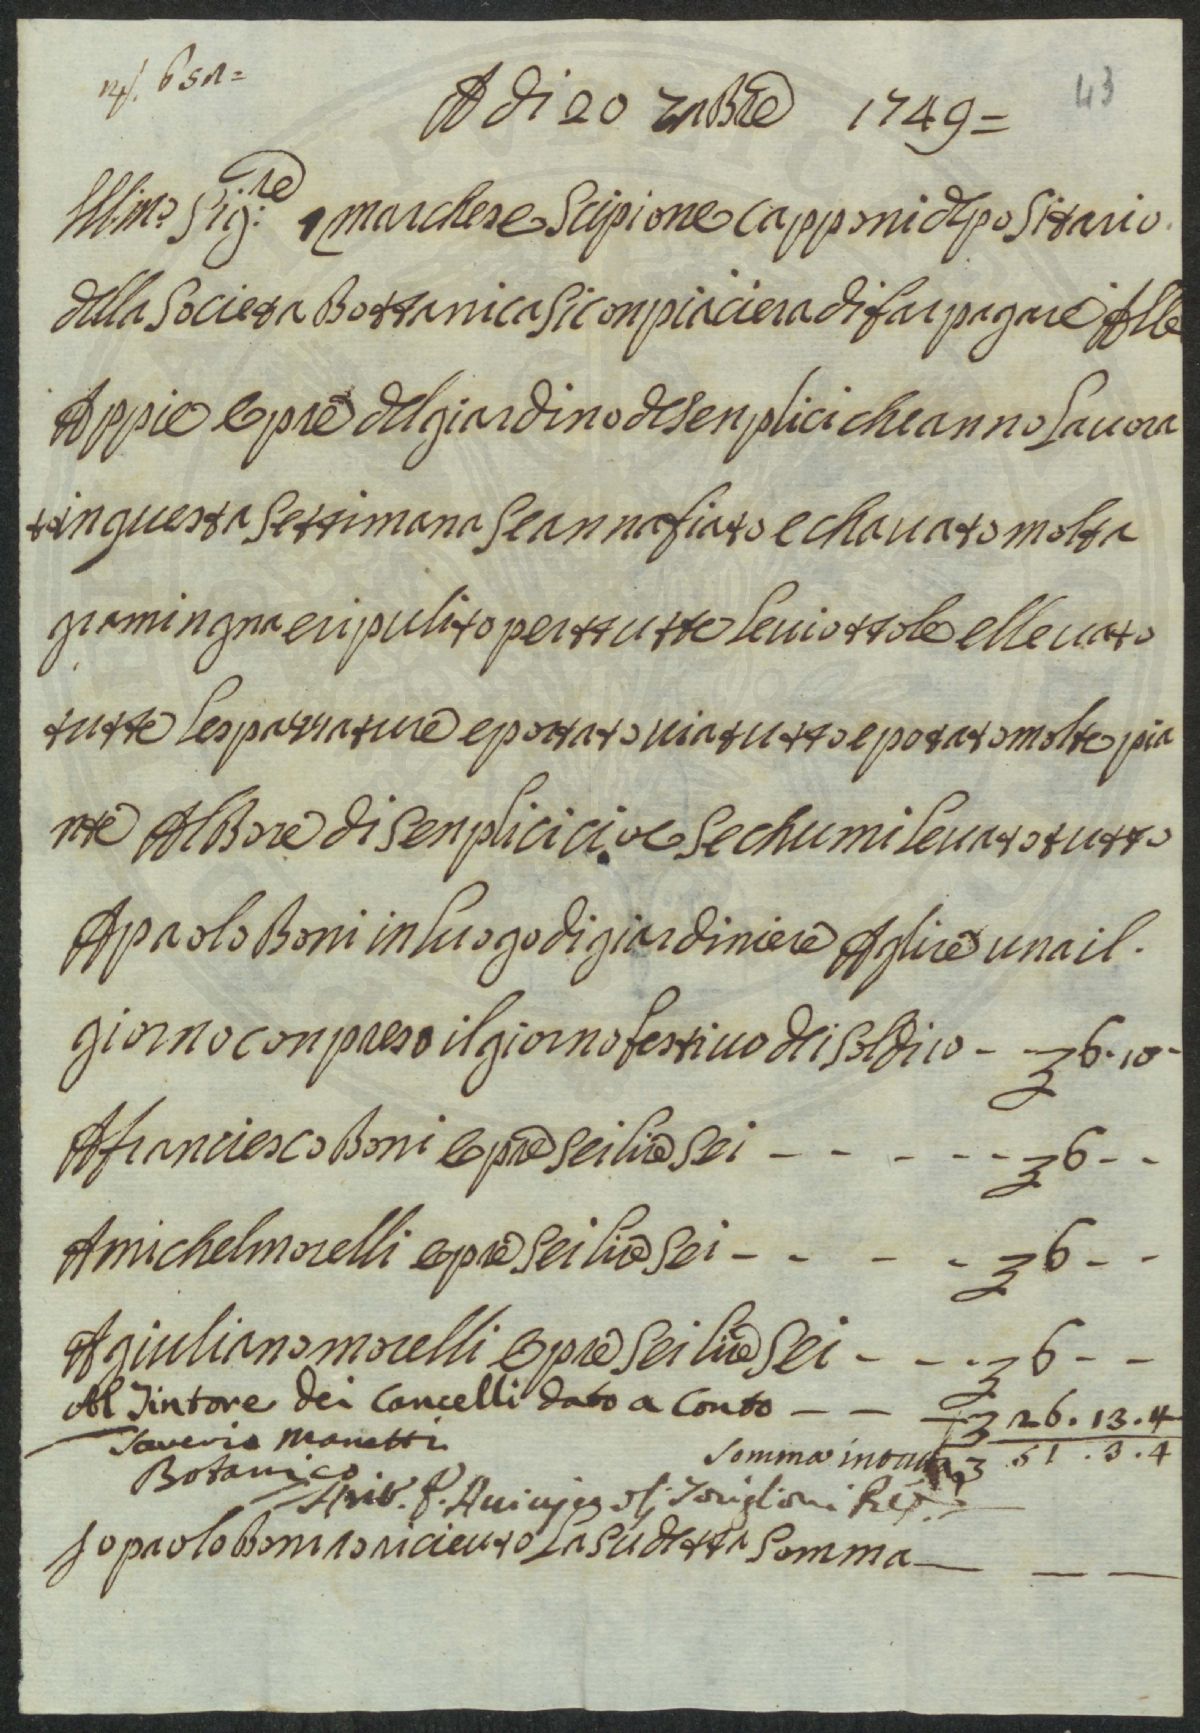 43
A di 20 7nbre 1749=
Illmo Sigre marchese Scipione Capponi depositario
della Societa Bottanica si conpiaciera di far pagare Alle
Appie e opre del giardino de Senplici che anno Lavora
to in questa Settimana Se annafiato e chavato molta
gramingna e ripulito per ttutte le viottole e llevato
tutte le spazzature e portato via tutto e potato molte pia
nte Albore di Senplici cioe Sechumi levato tutto
A paolo Boni in luogo di giardiniere A lire una il
giorno conpreso il giorno festivo dei Soldi 10 - - 6.10-
A franciesco Boni opre Sei lire Sei - - - - - - 6 - -
A michel morelli opre Sei lire Sei - - - - 6 - -
A giuliano morelli opre Sei lire Sei - - - 6 - -
Al Tintore dei Cancelli dato a Conto - - - 26.13.4
Saverio Manetti Somma in tutto 51.3.4
Botanico
Io paolo Boni o ricieuto La Sudetta Somma